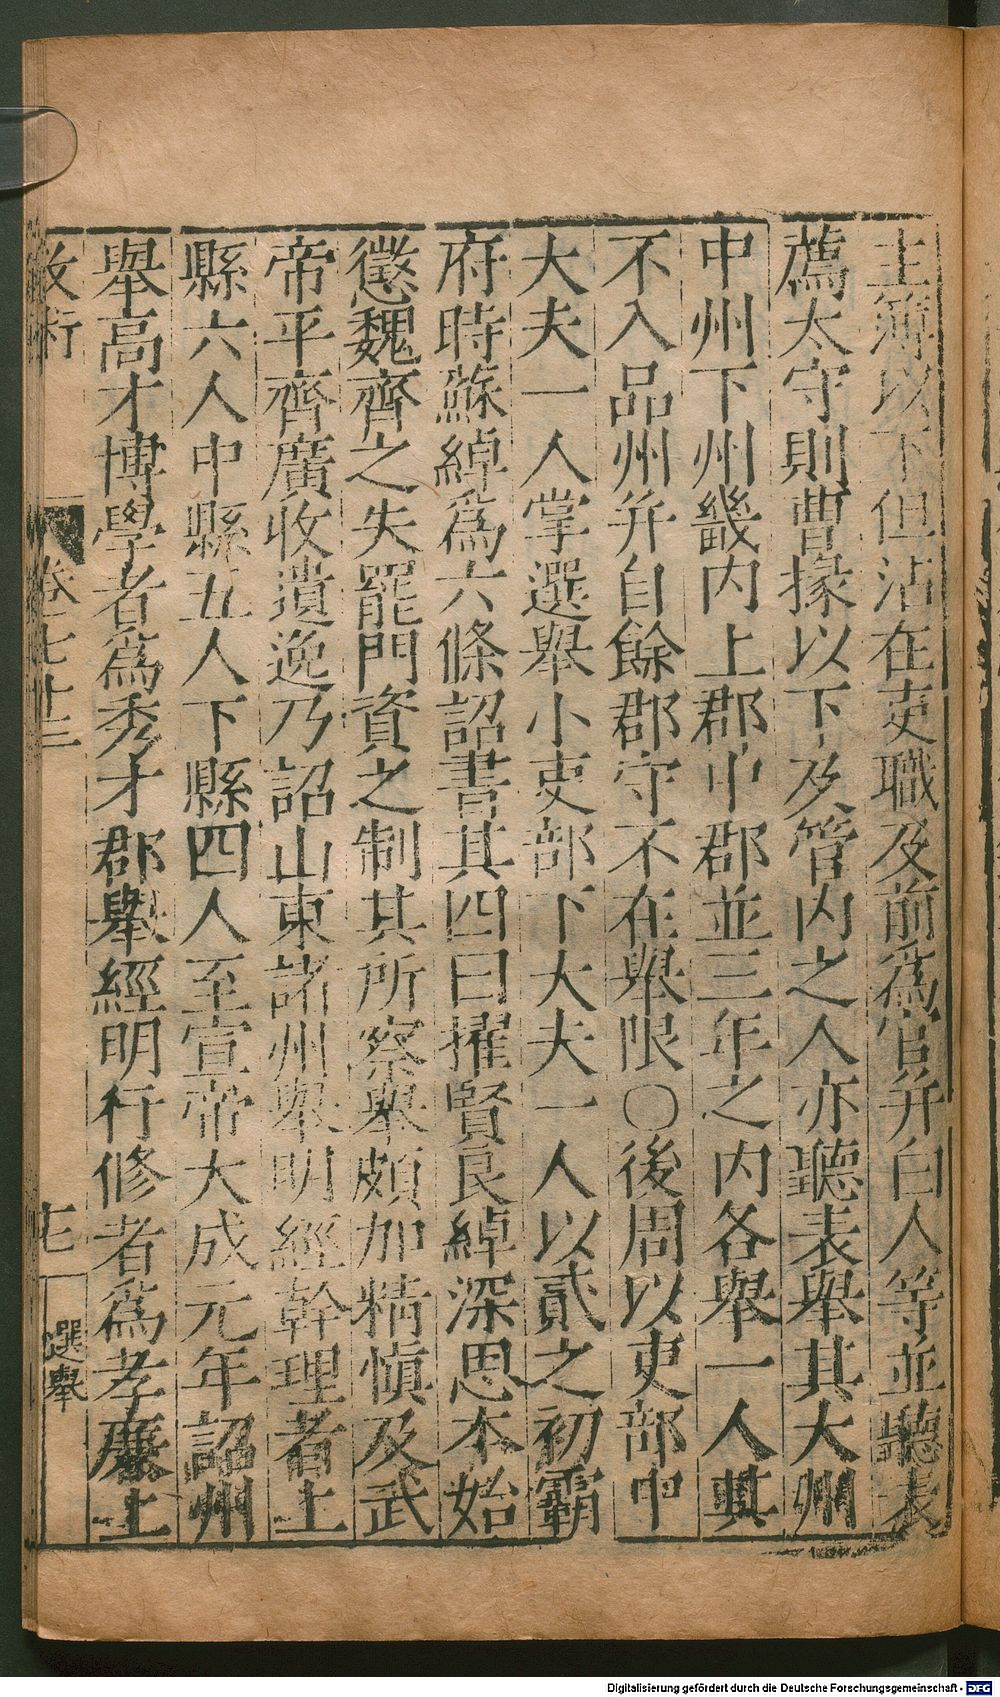 主簿以下但沾在吏職及前爲官并白人等並聽表
薦太守則曹掾以下及管内之人亦聽表舉其大州
中州下州畿内上郡中郡並三年之内各舉一人其
不入品州并自餘郡守不在舉限○後周以吏部中
大夫一人掌選舉小吏部下大夫一人以貳之初霸
府時蘇綽爲六條詔書其四曰擢賢良綽深思本始
懲魏齊之失罷門資之制其所察舉頗加精慎及武
帝平齊廣收遺逸乃詔山東諸州舉明經幹理者上
縣六人中縣五人下縣四人至宣帝大成元年詔州
舉高才博學者爲秀才郡舉經明行修者爲孝廉上
卷七十三
選舉
Digitalisierung gefördert durch die Deutsche Forschungsgemeinschaft - DFG